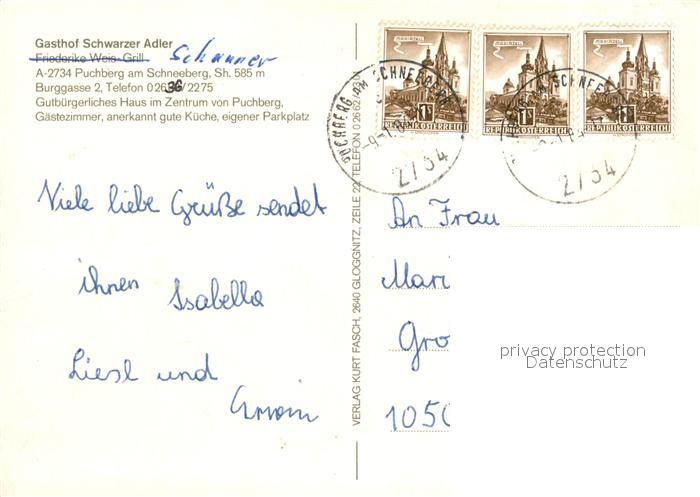 Gasthof Schwarzer Adler
Friederike Weis-Grill Schanner
A-2734 Puchberg am Schneeberg, Sh. 585 m
Burggasse 2, Telefon 0 26 36/2275
Gutbürgerliches Haus im Zentrum von Puchberg,
Gästezimmer, anerkannt gute Küche, eigener Parkplatz
Viele liebe Grüße sendet
ihnen Isabella
Liesl und
Erwin
VERLAG KURT FASCH, 2640 GLOGGNITZ, ZEILE 22, TELEFON 0 26 62/
MARIAZELL
1S
REPUBLIK ÖSTERREICH
MARIAZELL
1S
REPUBLIK ÖSTERREICH
MARIAZELL
1S
REPUBLIK ÖSTERREICH
PUCHBERG AM SCHNEEBERG
2734
AM SCHNEE
2734
An Frau
Mari
Gro
1050
privacy protection
Datenschutz